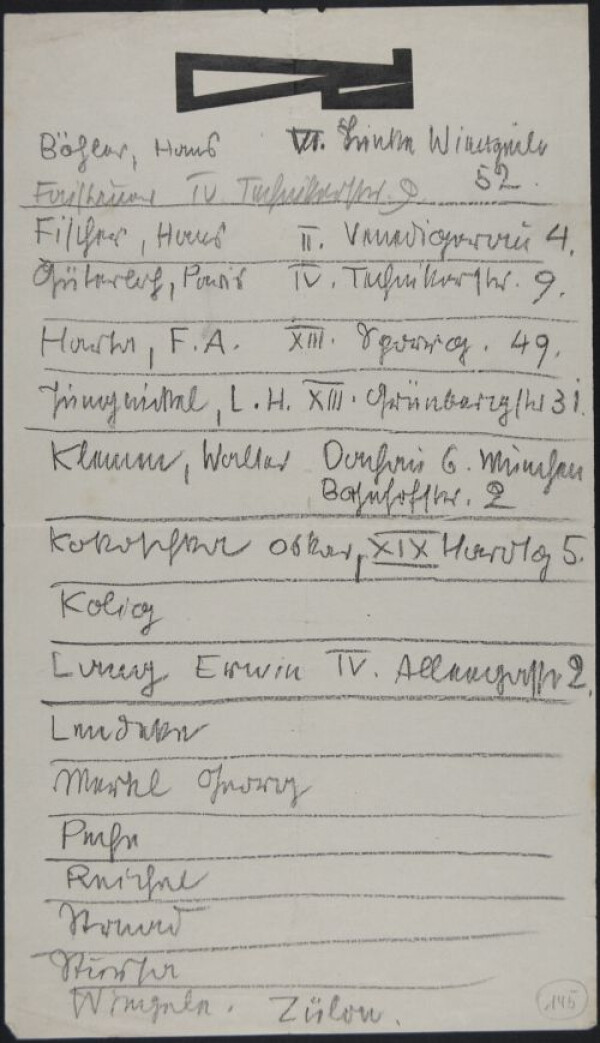 Böhler, Hans VI. Linke Wienzeile
52.
Faistauer IV Technikerstr. 9.
Fischer, Hans II. Venedigerau 4.
Gütersloh, Paris IV. Technikerstr. 9.
Harta, F.A. XIII. 49.
Jungnickel, L.H. XIII. Grünbergstr 31.
Klemm, Walter Dachau b. München
Bahnhofstr. 2
Kokoschka Oskar, XIX Hardtg 5.
Kolig
Lang Erwin IV. Alleegasse 2.
Lendecke
Merkel Georg
Peche
Reichel
Strnad
Wimpele. Zülow.
145